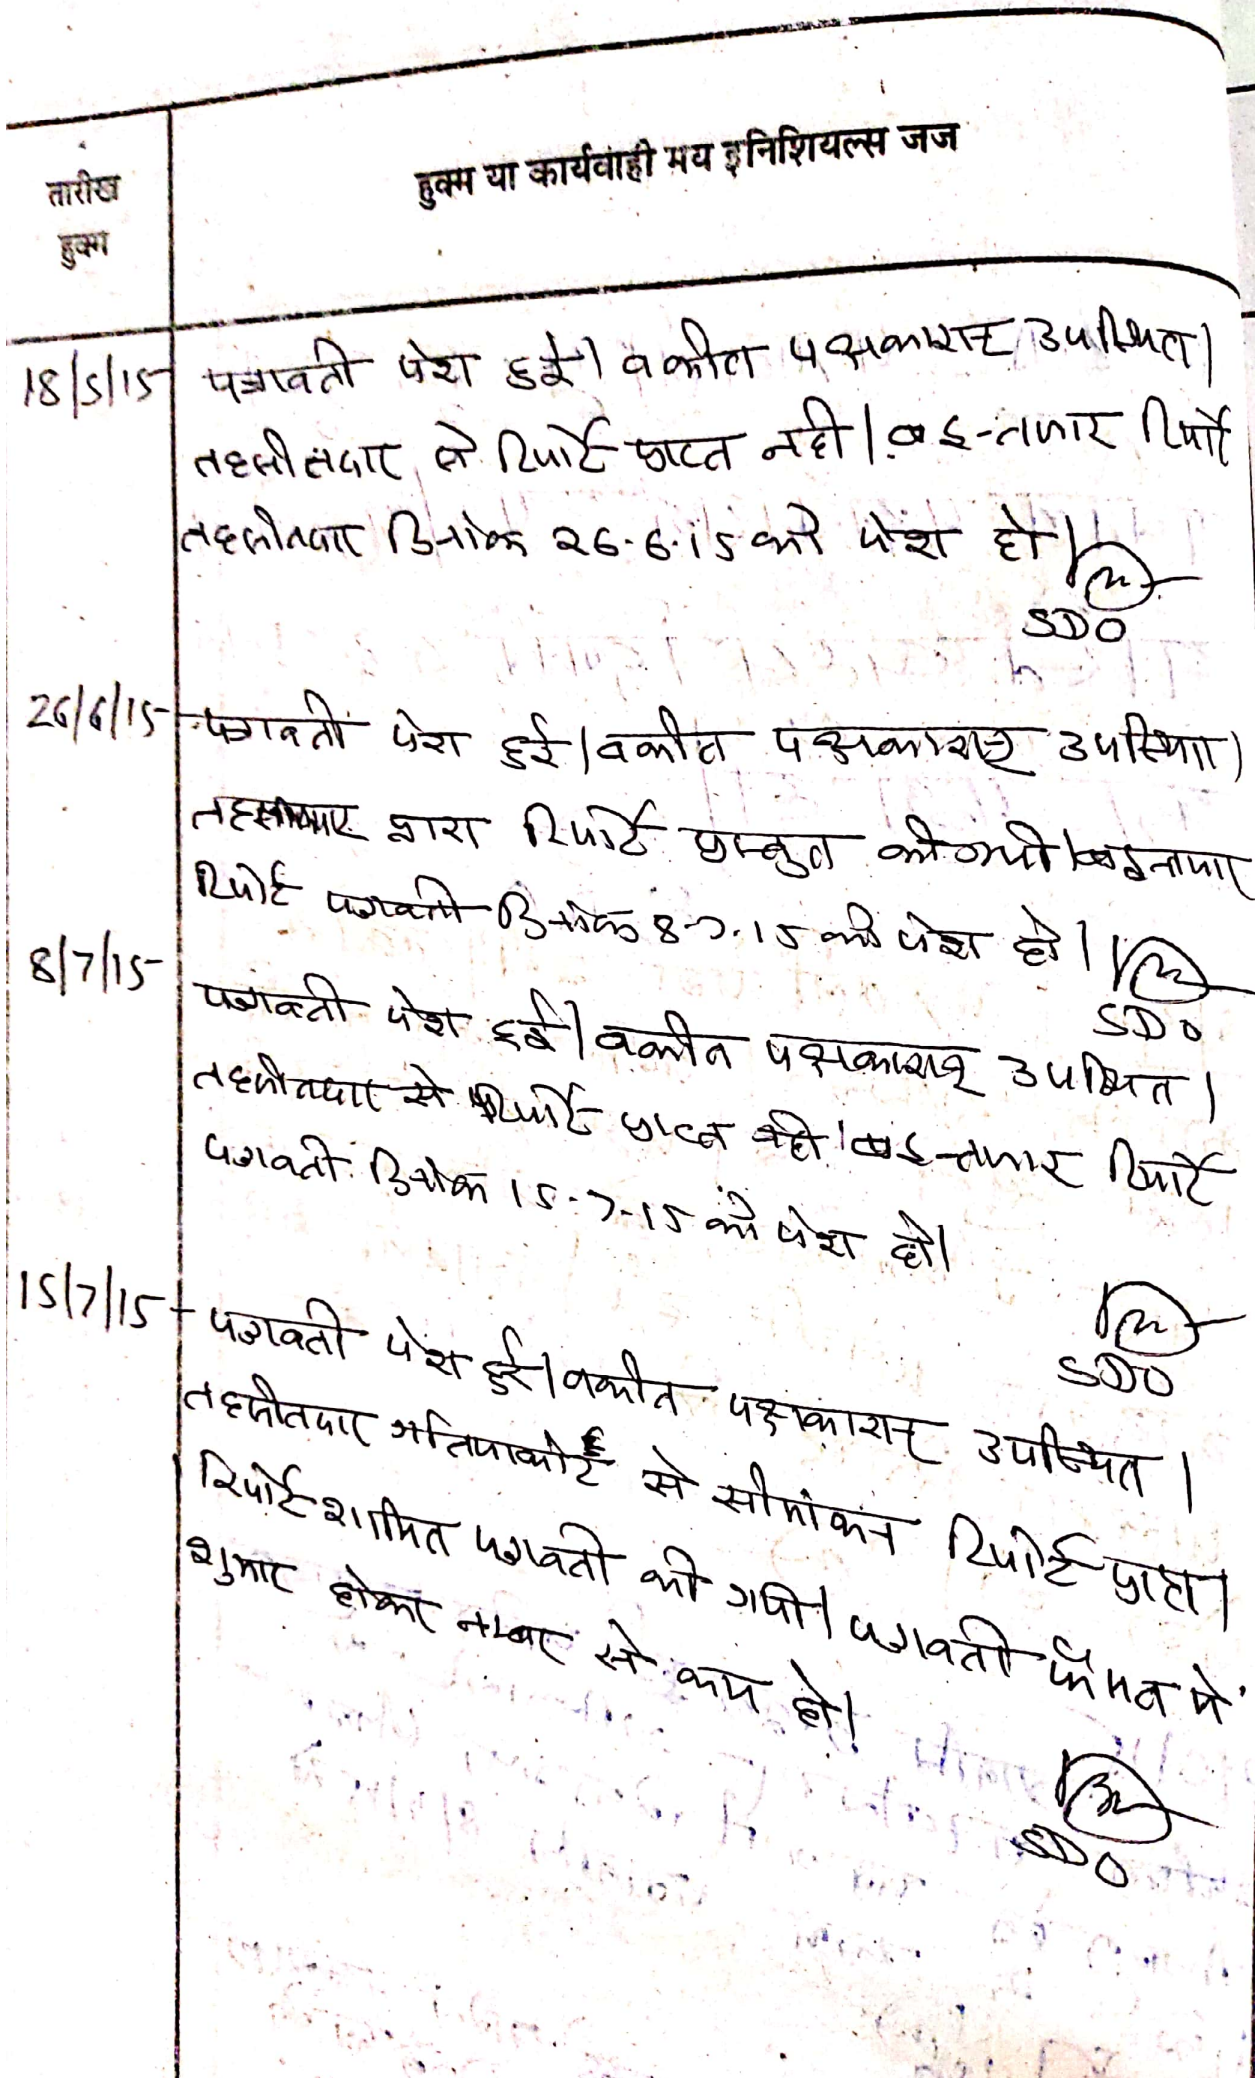 तारीख
हुक्म
हुक्म या कार्यवाही मय इनिशियल्स जज
18/5/15
पत्रावली पेश हुई। वकील पक्षकारान उपस्थित।
तहसीलदार से रिपोर्ट प्राप्त नही। व इन्तजार रिपोर्ट
तहसीलदार दिनांक 26.6.15 को पेश हो।
SDO
26/6/15
पत्रावली पेश हुई। वकील पक्षकारान उपस्थित।
तहसीलदार द्वारा रिपोर्ट प्रस्तुत की गयी। इन्तजार
रिपोर्ट पत्रावली दिनांक 8-7-15 को पेश हो।
SDO
8/7/15
पत्रावली पेश हुई। वकील पक्षकारान उपस्थित।
तहसीलदार से रिपोर्ट प्राप्त नही। इन्तजार रिपोर्ट
पत्रावली दिनांक 15-7-15 को पेश हो।
SDO
15/7/15
पत्रावली पेश हुई। वकील पक्षकारान उपस्थित।
तहसीलदार से सीमांकन रिपोर्ट प्राप्त।
रिपोर्ट शामिल पत्रावली की गयी। पत्रावली फैसल मे
शुमार होकर नम्बर से कम हो।
SDO